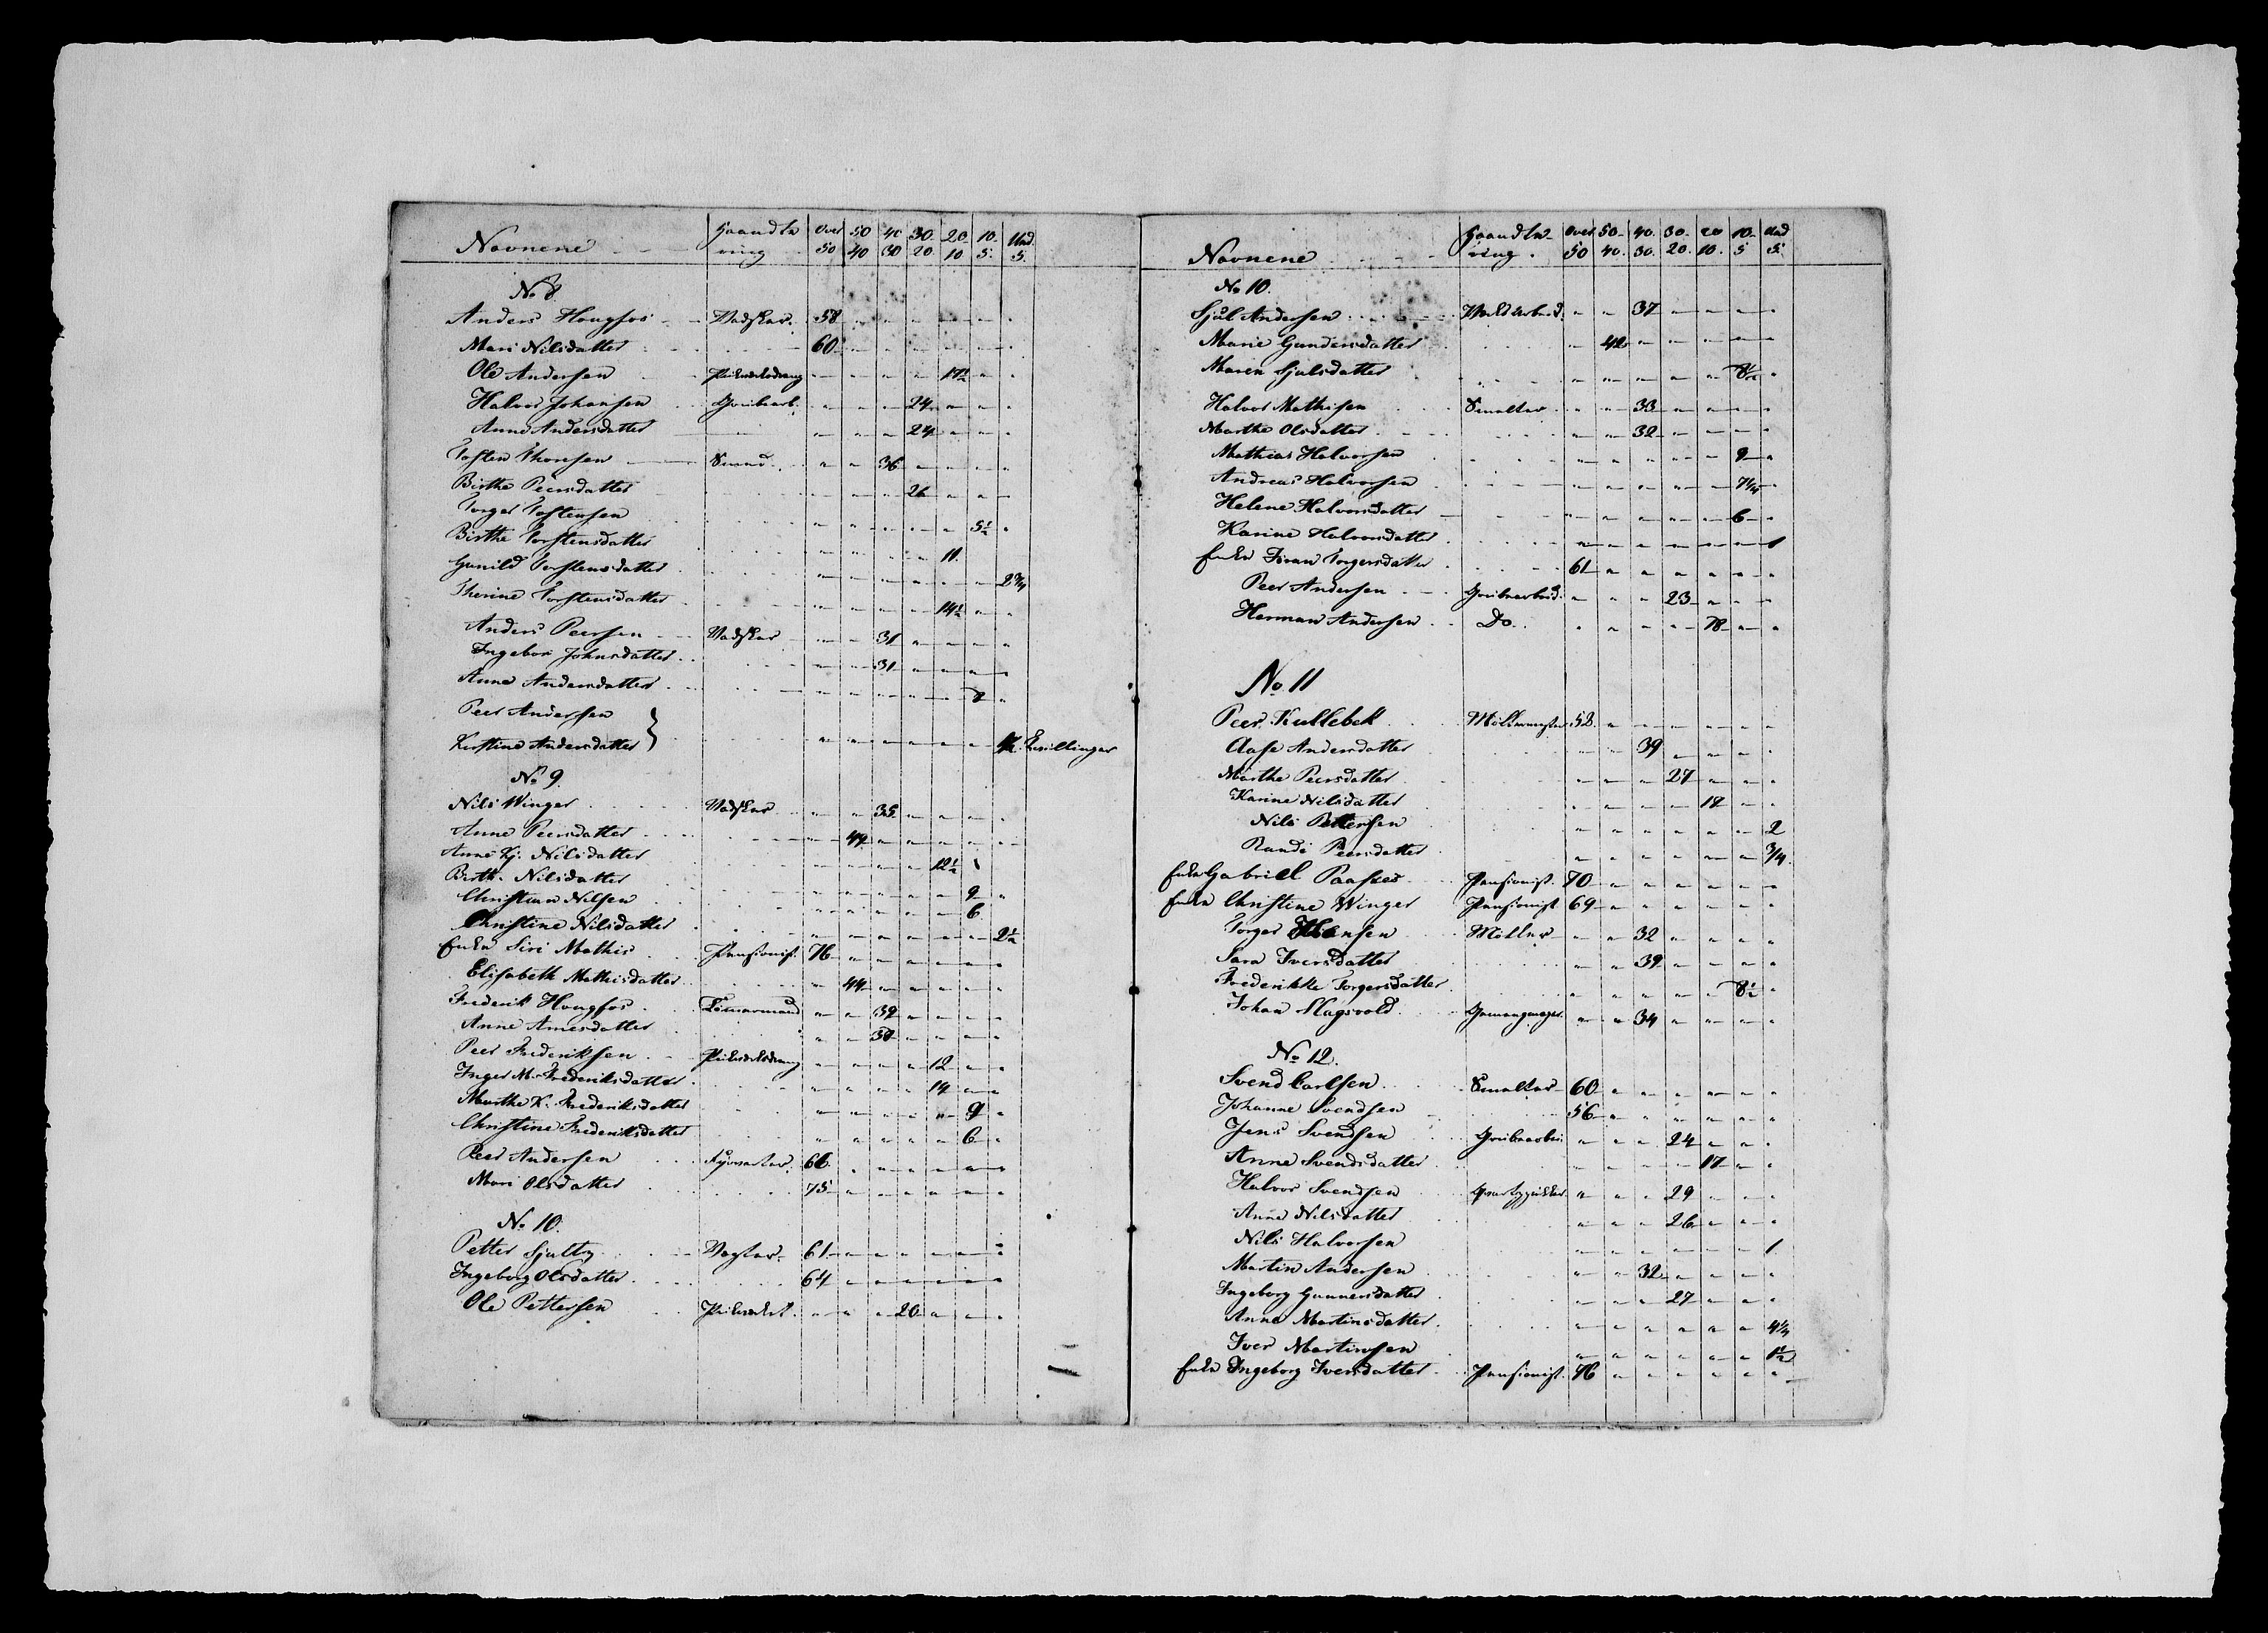 Navnene Haandtæ- Over 50 40 30. 20. 10. Und
ring 50 40 30 20 10 5. 5.
No 8.
Anders Hougfos Vadsker. 58
Mari Nilsdatter 60
Ole Andersen 17½
Halvor Johansen Grubearb. 24
Anne Andersdatter 24
Tosten Thorsen Smed 36
Birthe Peersdatter 26
Torger Tostensen 5½
Birthe Torstensdatter 11.
Gunild Torstensdatter 2¾
Therine Torstensdatter 14½
Anders Peersen Vadsker 31
Ingebor Johnsdatter 31
Anne Andersdatter 8
Peer Andersen }
Kirstine Andersdatter } ½ Tvillinger
No 9.
Nils Winger Vadsker 35
Anne Peersdatter 49
Anne Kj. Nilsdatter 12½
Birth. Nilsdatter 9
Christian Nilsen 6
Christine Nilsdatter 2½
Enke Siri Mathis Pensionist. 76
Elisabeth Mathisdatter 44
Frederik Hougfos Tömmermand 39
Anne Arnesdatter 38
Peer Frederiksen 12
Inger M. Frederiksdatter 14
Marthe K. Frederiksdatter 9
Christine Frederiksdatter 6
Peer Andersen 66
Mari Olsdatter 75
No 10.
Petter Sjulty Vogter 61
Ingeborg Olsdatter 64
Ole Pettersen 20
Navnene Haandtæ- Over 50- 40. 30. 20 10- Und
ring. 50 40. 30. 20. 10. 5 5.
No 10.
Sjul Andersen 37
Marie Gundersdatter 42
Maren Sjulsdatter 8½
Halvor Mathisen Smelter 33
Marthe Olsdatter 32
Mathias Halvorsen 9
Andreas Halvorsen 7¼
Helene Halvorsdatter 6
Karine Halvorsdatter 1
Enke Joran Torgersdatter 61
Peer Andersen Grubearbeid. 23
Herman Andersen Do. 18
No. 11
Peer Kullebek Möllermester 52
Aase Andersdatter 39
Marthe Peersdatter 27
Karine Nilsdatter 12
Nils Pettersen 2
Randi Peersdatter ¾
Enke Gabriel Paaskes Pensionist. 70
Enke Christine Winger Pensionist 69
Torger Hansen Möller 32
Sara Iversdatter 39
Frederikke Torgersdatter 8½
Johan Slagsvold 34
No 12.
Svend Carlsen Smelter 60
Johanne Svendsen 56
Jens Svendsen Grubearbei. 24
Anne Svendsdatter 17
Halvor Svendsen 29
Anne Nilsdatter 26
Nils Halvorsen 1
Martin Andersen 32
Ingeborg Gunnersdatter 27
Anne Martinsdatter 4¼
Iver Martinsen 1½
Enke Ingeborg Iversdatter Pensionist. 76